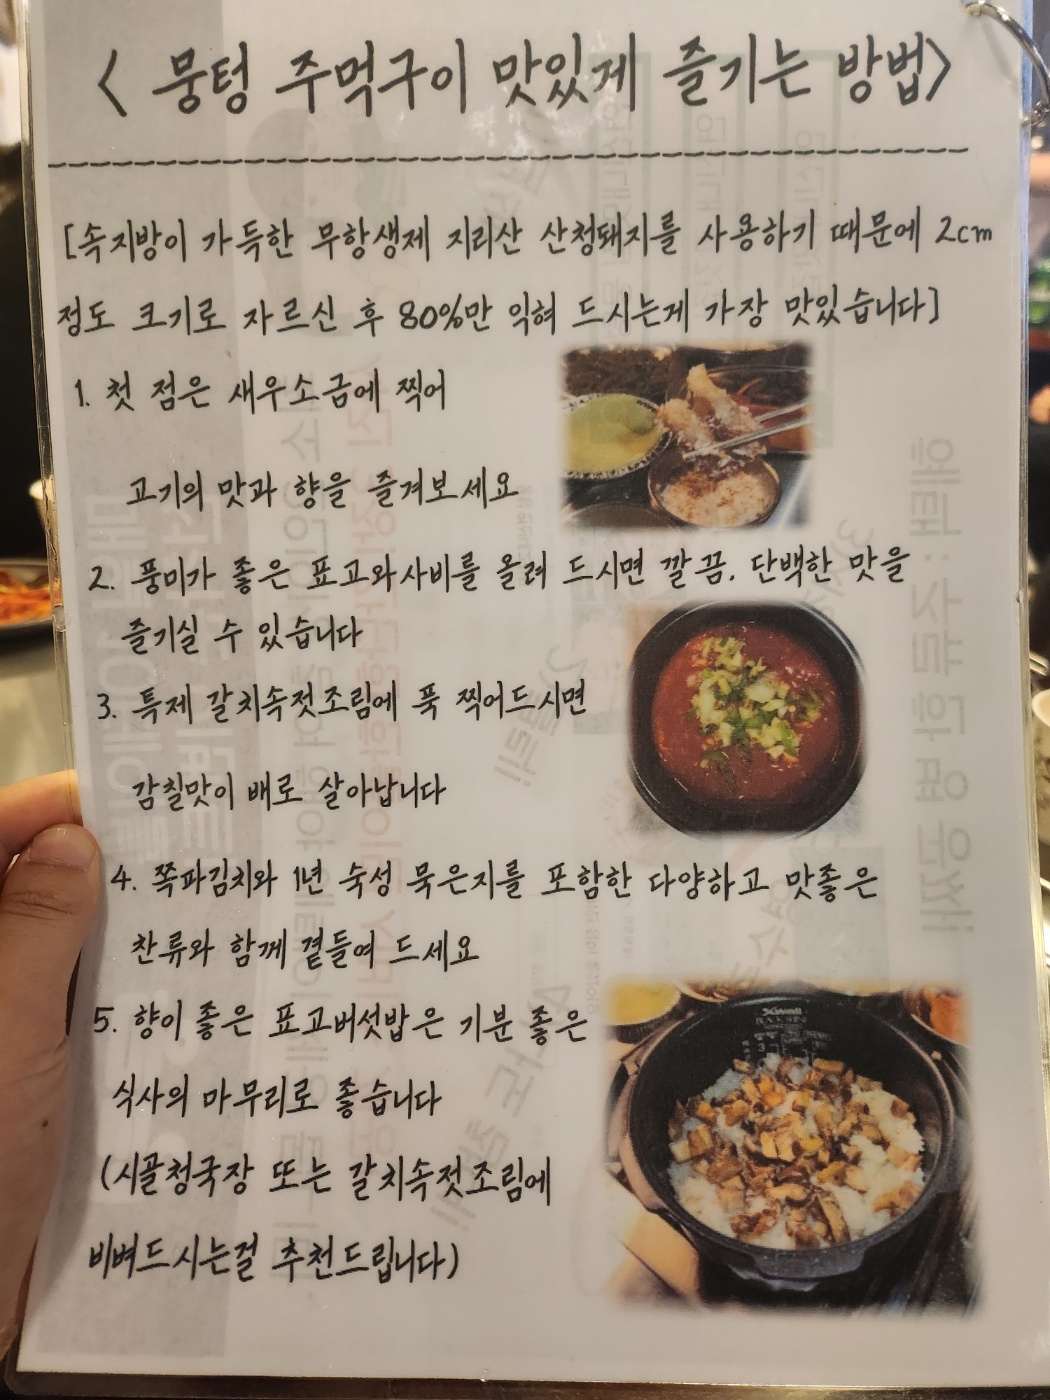 < 뭉텅 주먹구이 맛있게 즐기는 방법>
[속지방이 가득한 무항생제 지리산 산청돼지를 사용하기 때문에 2cm
정도 크기로 자르신 후 80%만 익혀 드시는게 가장 맛있습니다]
1. 첫 점은 새우소금에 찍어
고기의 맛과 향을 즐겨보세요
2. 풍미가 좋은 표고와사비를 올려 드시면 깔끔, 단백한 맛을
즐기실 수 있습니다
3. 특제 갈치속젓조림에 푹 찍어드시면
감칠맛이 배로 살아납니다
4. 쪽파김치와 1년 숙성 묵은지를 포함한 다양하고 맛좋은
찬류와 함께 곁들여 드세요
5. 향이 좋은 표고버섯밥은 기분 좋은
식사의 마무리로 좋습니다
(시골청국장 또는 갈치속젓조림에
비벼드시는걸 추천드립니다)